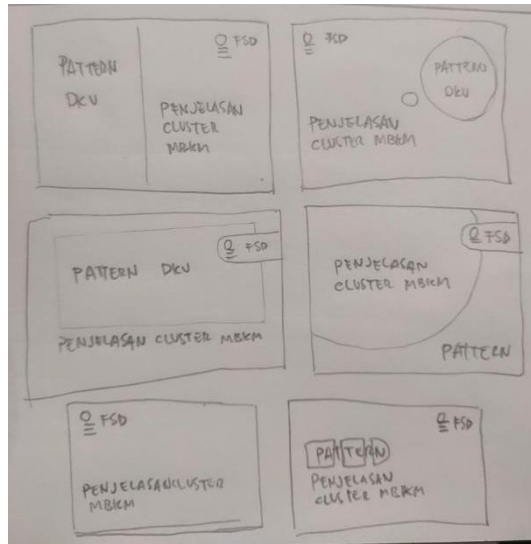 PATTERN
DKV
FSD
PENJELASAN
CLUSTER
MBKM
FSD
PATTERN
DKV
PENJELASAN
CLUSTER MBKM
FSD
PATTERN DKV
PENJELASAN CLUSTER MBKM
FSD
PENJELASAN
CLUSTER MBKM
PATTERN
FSD
PENJELASAN CLUSTER
MBKM
FSD
PATTERN
PENJELASAN
CLUSTER MBKM